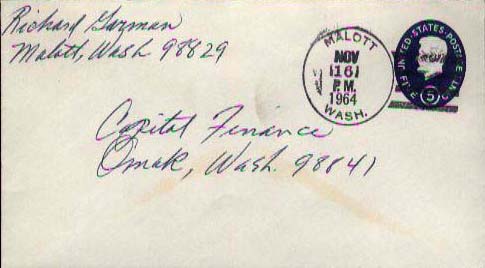 Richard Garman
Malott, Wash 98829
MALOTT
NOV
16
P.M.
1964
WASH.
UNITED STATES POSTAGE
FIVE CENTS
5
Capital Finance
Omak, Wash. 98841